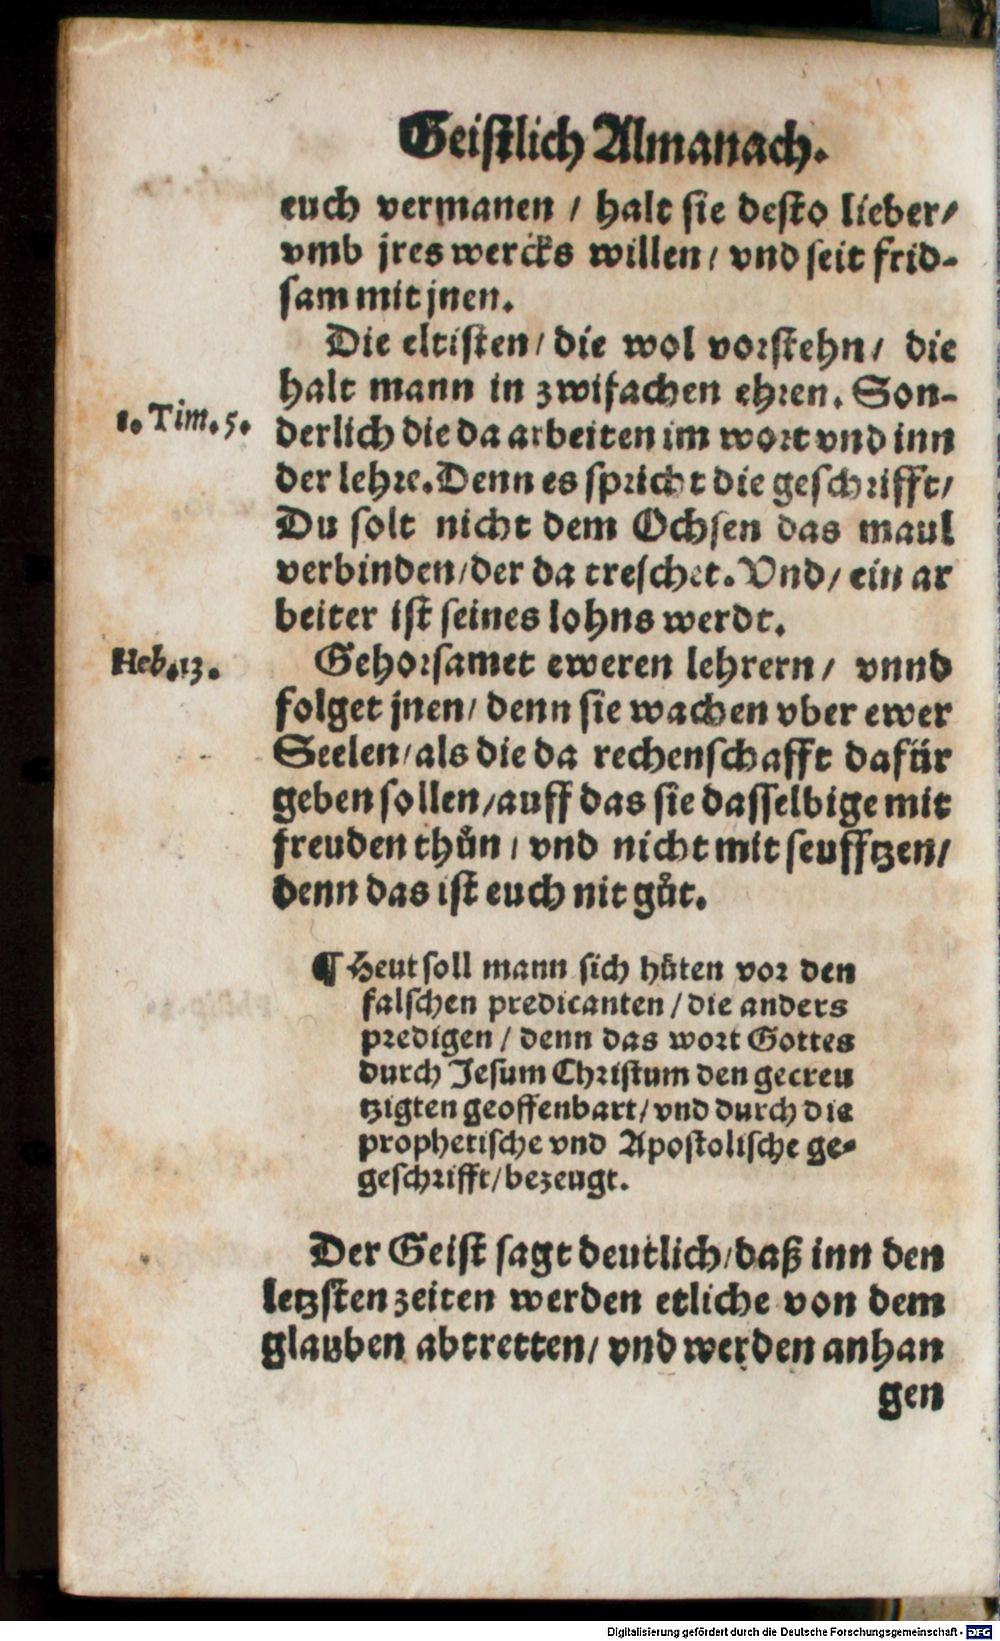 Geistlich Almanach.
euch vermanen / halt sie desto lieber /
vmb jres wercks willen / vnd seit frid-
sam mit jnen.
Die eltisten / die wol vorstehn / die
halt mann in zwifachen ehren. Son-
1. Tim. 5.
derlich die da arbeiten im wort vnd inn
der lehre. Denn es spricht die geschrifft /
Du solt nicht dem Ochsen das maul
verbinden / der da treschet. Vnd / ein ar
beiter ist seines lohns werdt.
Heb. 13.
Gehorsamet eweren lehrern / vnnd
folget jnen / denn sie wachen vber ewer
Seelen / als die da rechenschafft dafür
geben sollen / auff das sie dasselbige mit
freuden thůn / vnd nicht mit seufftzen /
denn das ist euch nit gůt.
¶ Heut soll mann sich hüten vor den
falschen predicanten / die anders
predigen / denn das wort Gottes
durch Jesum Christum den gecreu
tzigten geoffenbart / vnd durch die
prophetische vnd Apostolische ge-
geschrifft / bezeugt.
Der Geist sagt deutlich / daß inn den
letzsten zeiten werden etliche von dem
glauben abtretten / vnd werden anhan
gen
Digitalisierung gefördert durch die Deutsche Forschungsgemeinschaft - DFG